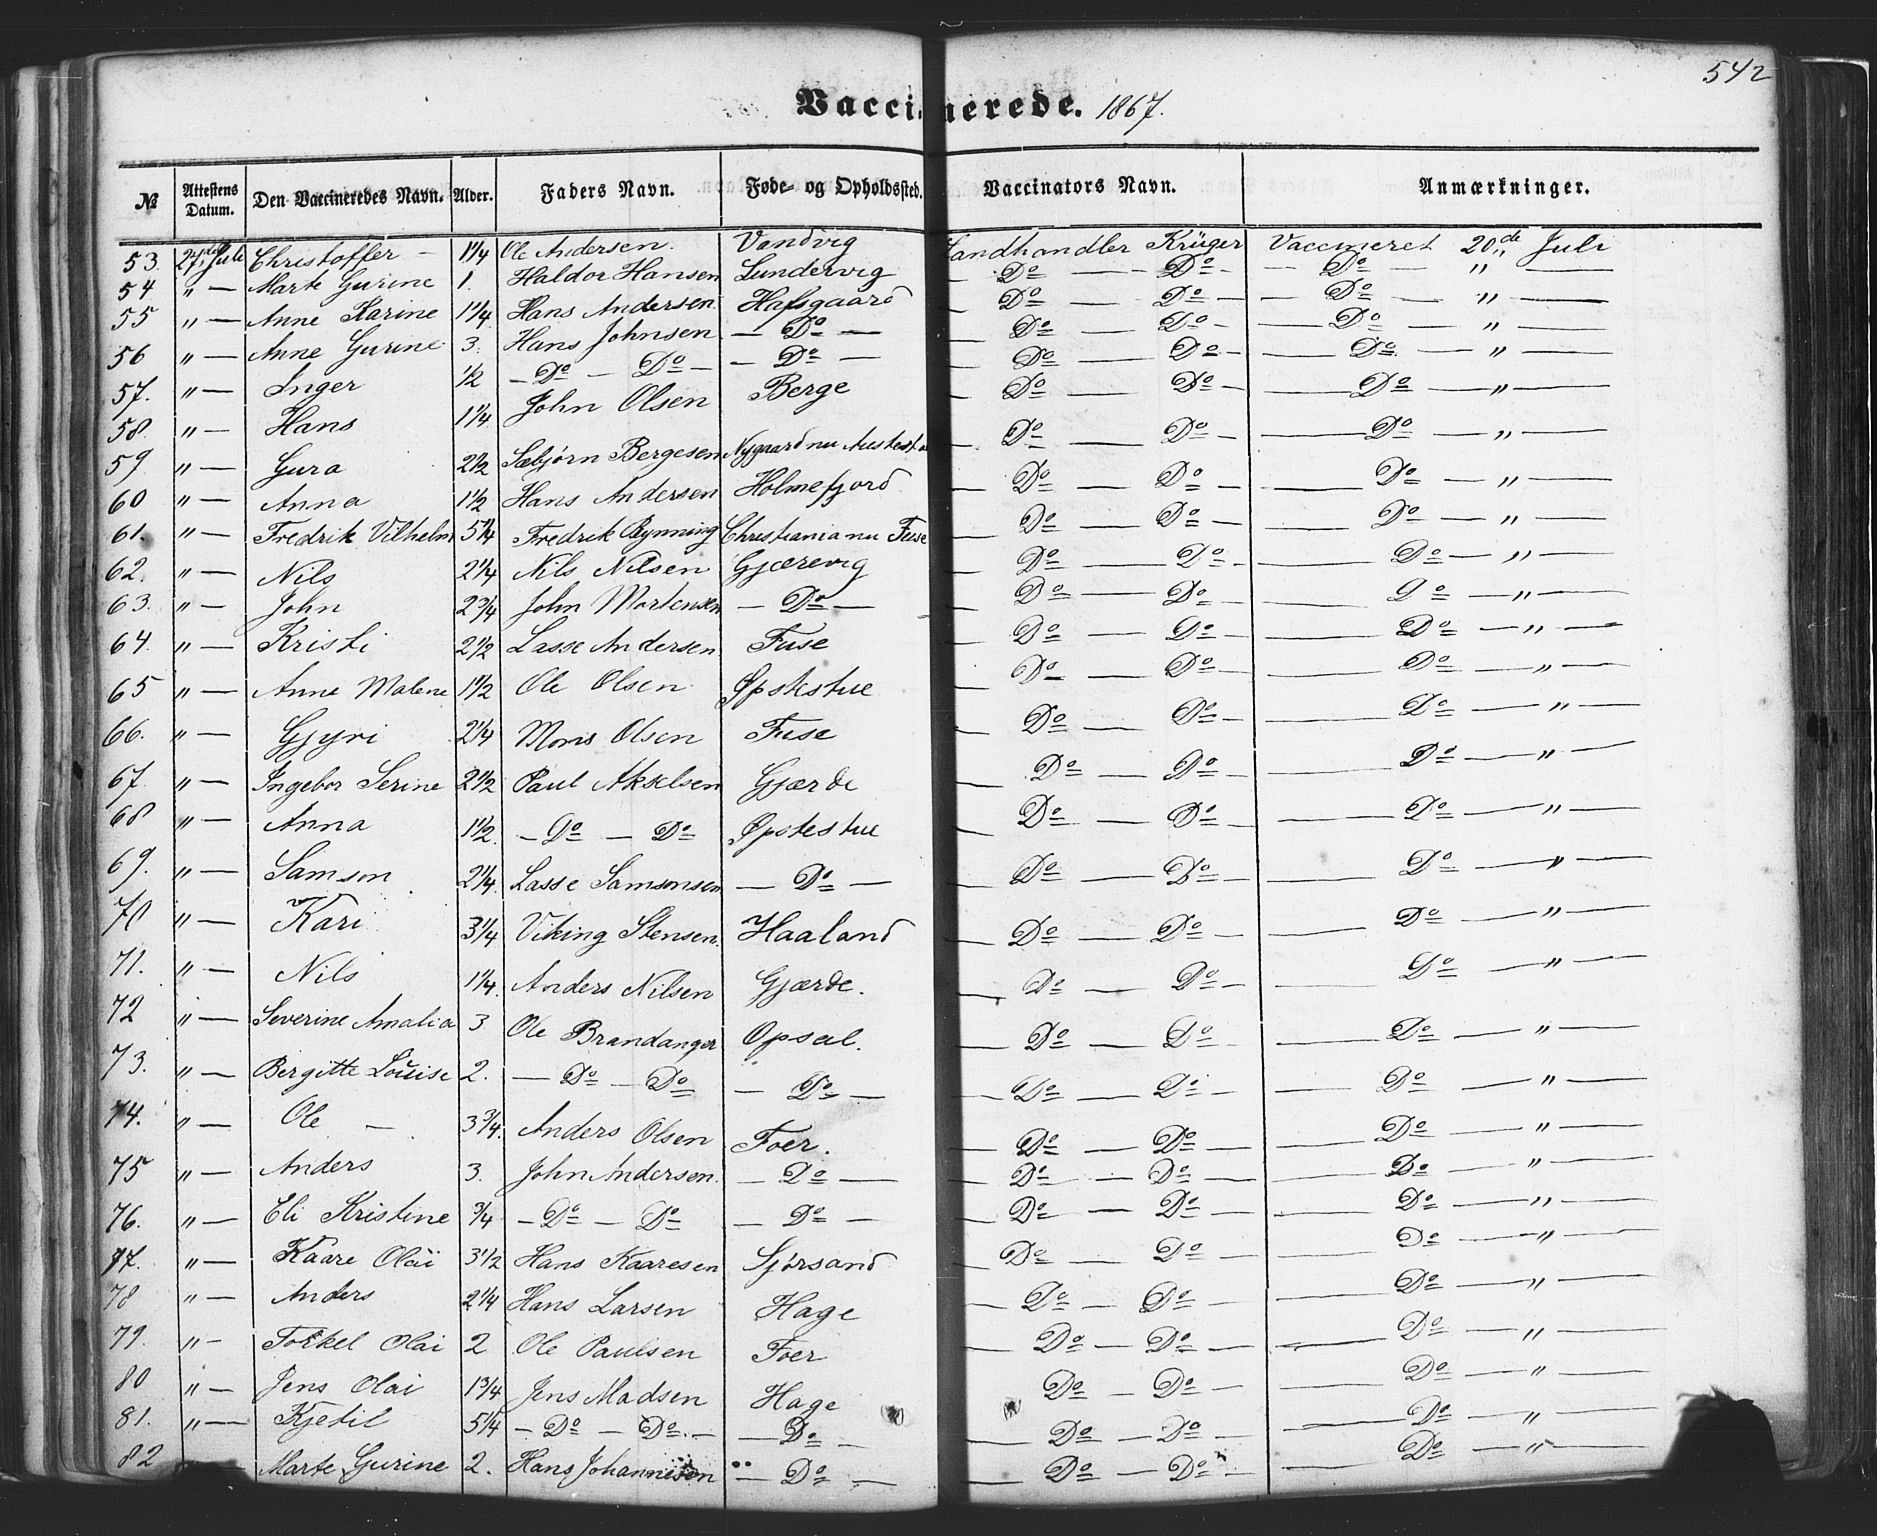 542
Vaccinerede. 1867.
№ Attestens Datum. Den Vaccineredes Navn. Alder. Faders Navn. Føde- og Opholdssted. Vaccinators Navn. Anmærkninger.
53. 27de Juli Christoffer – 1 1/4 Ole Andersen. Vandvig Landhandler Krüger Vaccineret 20de Juli
54 " — Marte Gurine 1. Haldor Hansen Sundervig — Do — Do — — Do — " —
55 " — Anne Karine 1 1/4 Hans Andersen Hafsgaard — Do — Do — — Do — " —
56 " — Anne Gurine 3. Hans Johnsen — Do — — Do — Do — — Do — " —
57. " — Inger 1/2 — Do — Do — — Do — — Do — Do — — Do — " —
58. " — Hans 1 1/4 John Olsen Berge — Do — Do — — Do — " —
59. " — Gura 2 1/2 Sæbjørn Bergesen Nygaard nu — Do — Do — — Do — " —
60 " — Anna 1 1/2 Hans Andersen Holmefjord — Do — Do — — Do — " —
61. " — Fredrik Vilhelm 5 1/4 Fredrik Rynning Christiania nu Fuse — Do — Do — — Do — " —
62. " — Nils 2 1/4 Nils Nilsen Gjærevig — Do — Do — — Do — " —
63. " — John 2 3/4 John Mortensen — Do — — Do — Do — — Do — " —
64. " — Kristi 2 1/2 Lasse Andersen Fuse — Do — Do — — Do — " —
65 " — Anne Malene 1 1/2 Ole Olsen Øpstestue — Do — Do — — Do — " —
66. " — Gjyri 2 1/4 Mons Olsen Fuse — Do — Do — — Do — " —
67. " — Ingebor Serine 2 1/2 Paul Akselsen Gjærde — Do — Do — — Do — " —
68 " — Anna 1 1/2. — Do — Do Øpstestue — Do — Do — — Do — " —
69. " — Samson 2 1/4. Lasse Samsonsen — Do — — Do — Do — — Do — " —
70 " — Kari 3 1/4 Viking Stensen. Haaland — Do — Do — — Do — " —
71. " — Nils 1 1/4. Anders Nilsen Gjærde. — Do — Do — — Do — " —
72 " — Severine Amalia 3 Ole Brandanger Opsal. — Do — Do — — Do — " —
73. " — Bergitte Louise 2. — Do — Do — Do — — Do — Do — — Do — " —
74. " — Ole — 3 3/4. Anders Olsen Foer. — Do — Do — — Do — " —
75 " — Anders 3. John Andersen. — Do — — Do — Do — — Do — " —
76. " — Eli Kristine 3/4 — Do — Do — Do — — Do — Do — — Do — " —
77. " — Kaare Olai 3 1/2 Hans Kaaresen Sjørsand — Do — Do — — Do — " —
78 " — Anders 2 1/4 Hans Larsen Hage — Do — Do — — Do — " —
79. " — Torkel Olai 2 Ole Paulsen Foer — Do — Do — — Do — " —
80 " — Jens Olai 1 3/4 Jens Madsen Hage — Do — Do — — Do — " —
81. " — Kjetil 5 1/4 — Do — Do. — — Do — — Do — Do — — Do — " —
82 — Marte Gurine 2. Hans Johannesen — Do — — Do — Do — — Do — " —